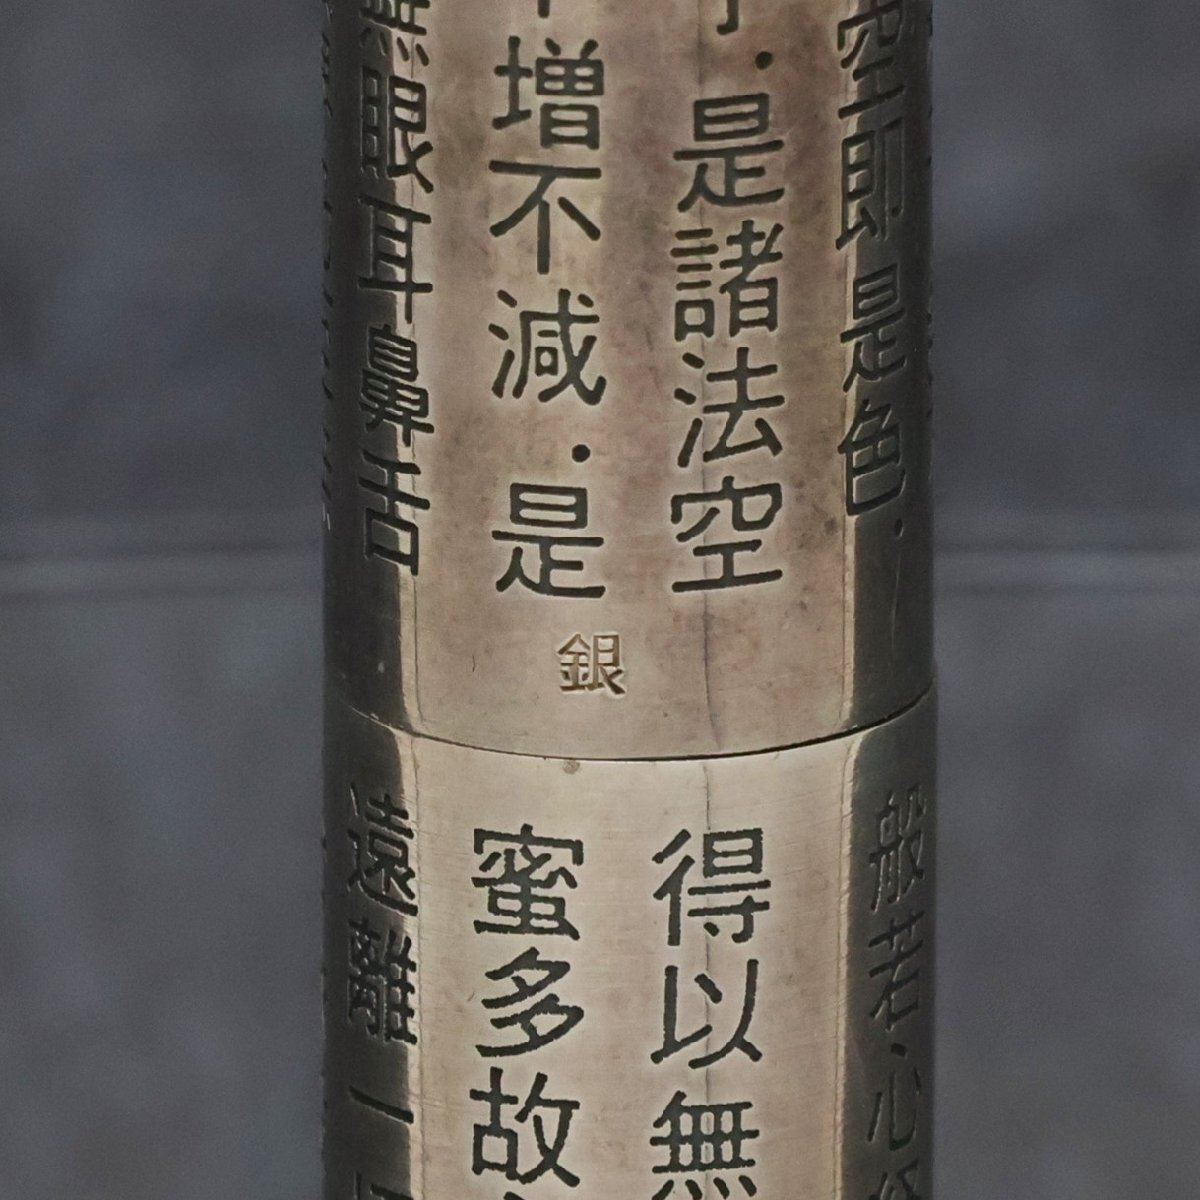 空即是色.
.是諸法空
増不減.是
無眼耳鼻舌
銀
般若心
得以無
蜜多故
遠離一